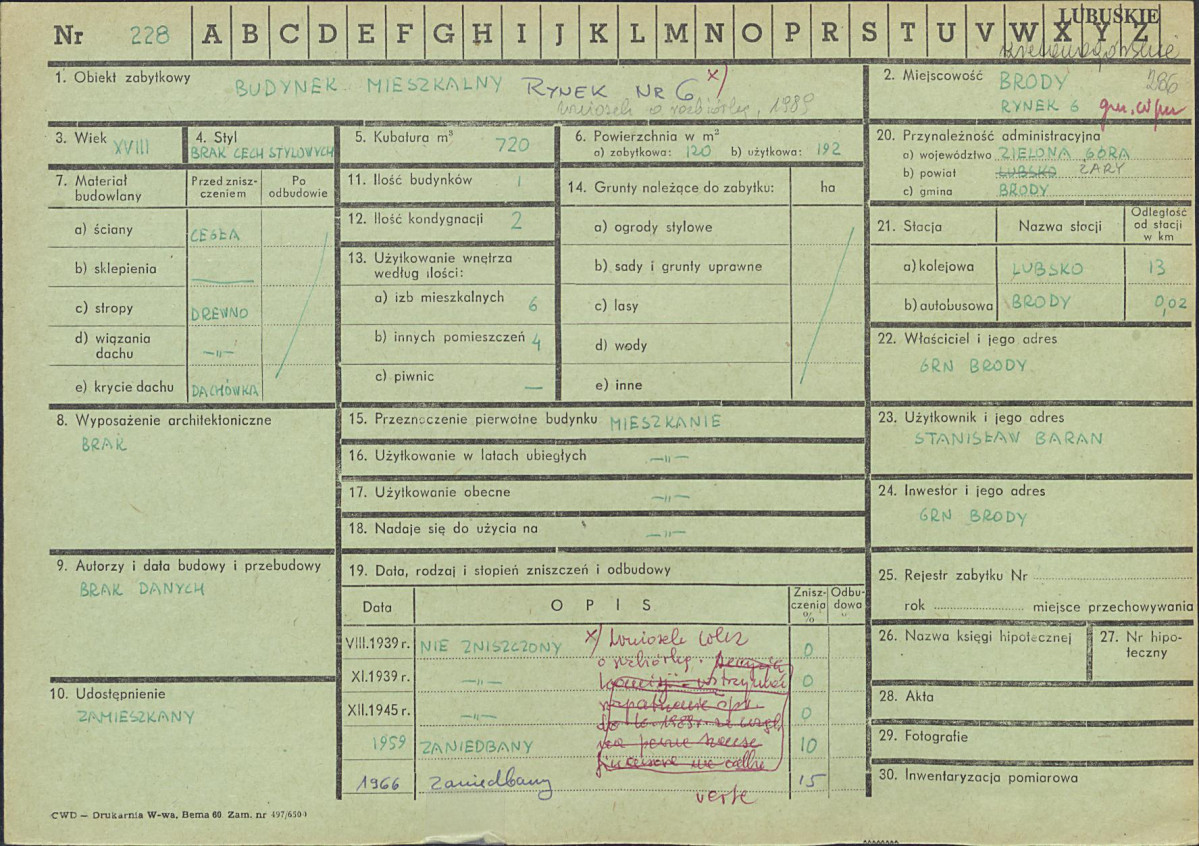 Nr 228 A B C D E F G H I J K L M N O P R S T U V W X Y Z LUBUSKIE
1. Obiekt zabytkowy BUDYNEK MIESZKALNY RYNEK NR 6 x)
wniosek o rozbiórkę, 1989
2. Miejscowość BRODY 286
RYNEK 6
3. Wiek XVIII
4. Styl
BRAK CECH STYLOWYCH
5. Kubatura m³ 720
6. Powierzchnia w m²
a) zabytkowa: 120 b) użytkowa: 192
20. Przynależność administracyjna
a) województwo ZIELONA GÓRA
b) powiat LUBSKO ŻARY
c) gmina BRODY
7. Materiał budowlany
Przed zniszczeniem
Po odbudowie
a) ściany CEGŁA
b) sklepienia —
c) stropy DREWNO
d) wiązania dachu —"—
e) krycie dachu DACHÓWKA
11. Ilość budynków 1
12. Ilość kondygnacji 2
13. Użytkowanie wnętrza
według ilości:
a) izb mieszkalnych 6
b) innych pomieszczeń 4
c) piwnic —
14. Grunty należące do zabytku: ha
a) ogrody stylowe
b) sady i grunty uprawne
c) lasy
d) wody
e) inne
21. Stacja Nazwa stacji Odległość od stacji w km
a) kolejowa LUBSKO 13
b) autobusowa BRODY 0,02
22. Właściciel i jego adres
GRN BRODY
8. Wyposażenie architektoniczne
BRAK
15. Przeznaczenie pierwotne budynku MIESZKANIE
16. Użytkowanie w latach ubiegłych —"—
17. Użytkowanie obecne —"—
18. Nadaje się do użycia na —"—
23. Użytkownik i jego adres
STANISŁAW BARAN
24. Inwestor i jego adres
GRN BRODY
9. Autorzy i data budowy i przebudowy
BRAK DANYCH
19. Data, rodzaj i stopień zniszczeń i odbudowy
Data OPIS Zniszczenia % Odbudowa "
VIII.1939 r. NIE ZNISZCZONY x) Wniosek 0
o rozbiórkę.
XI.1939 r. —"— 0
XII.1945 r. —"— 0
1959 ZANIEDBANY 10
1966 Zaniedbany 15
verte
10. Udostępnienie
ZAMIESZKANY
25. Rejestr zabytku Nr
rok miejsce przechowywania
26. Nazwa księgi hipotecznej
27. Nr hipoteczny
28. Akta
29. Fotografie
30. Inwentaryzacja pomiarowa
CWD — Drukarnia W-wa, Bema 60 Zam. nr 497/650